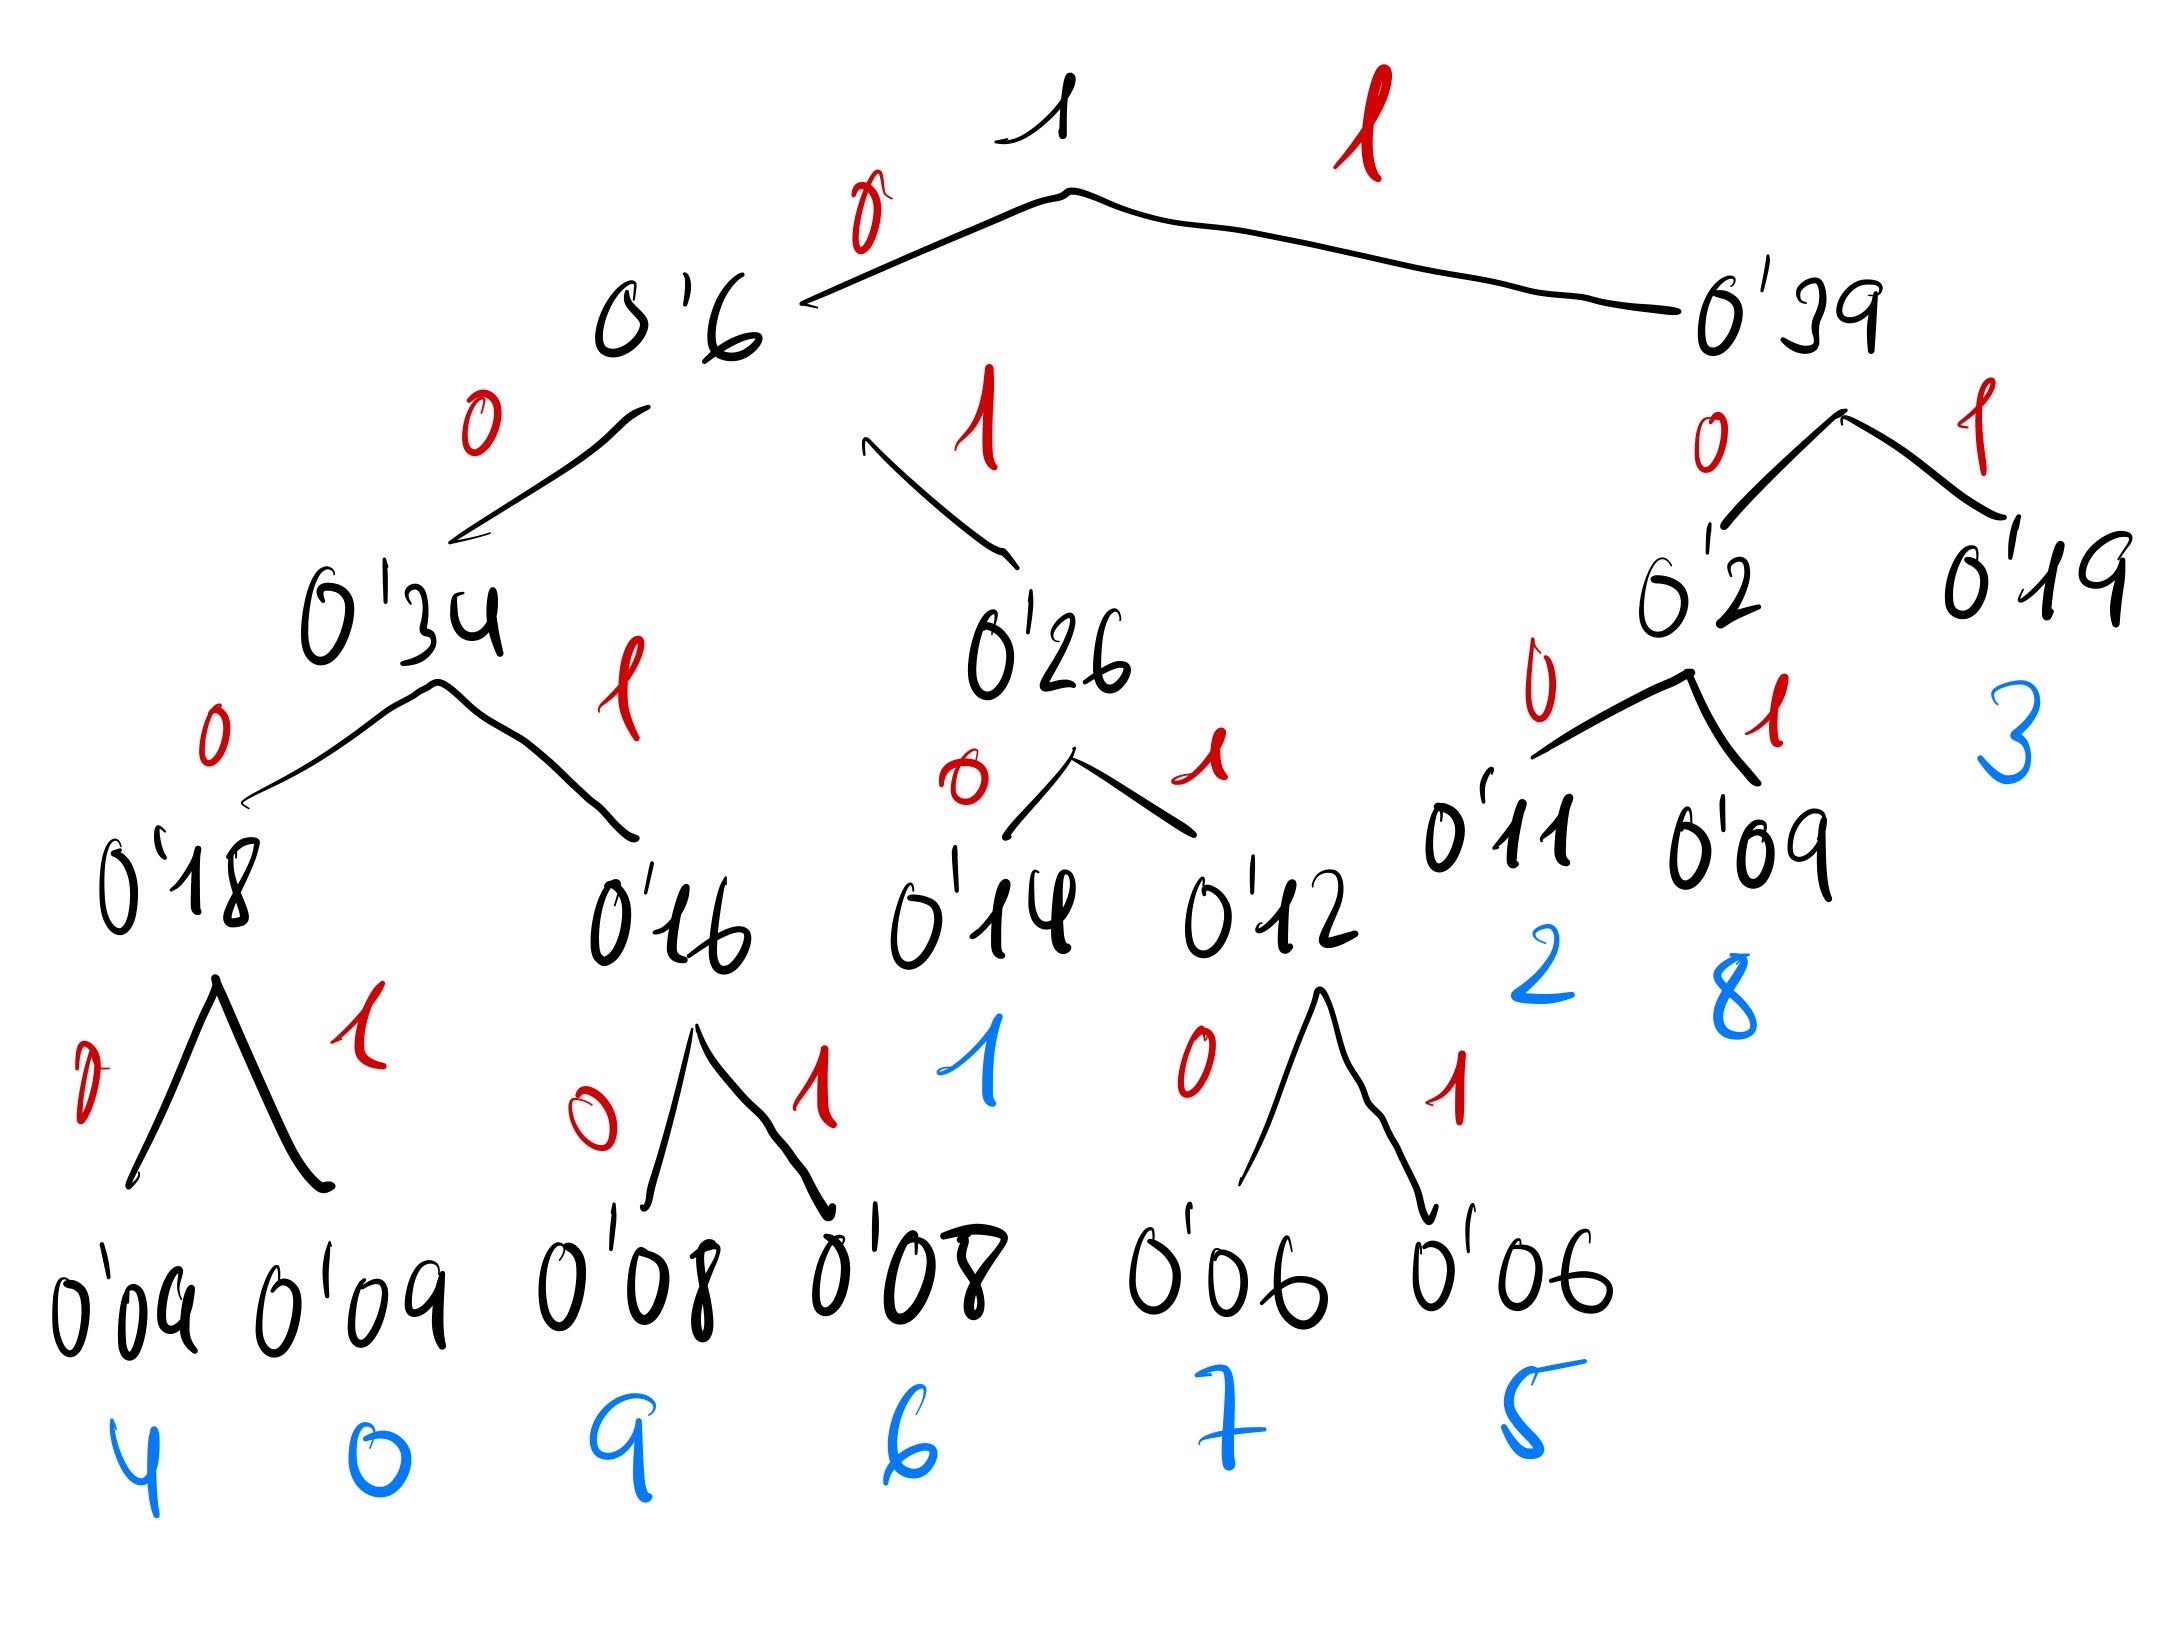 1 1
0
0'6 0'39
0 1 0 1
0'34 0'26 0'2 0'19
0 1 0 1 0 1 3
0'18 0'16 0'14 0'12 0'11 0'09
2 8
0 1 0 1 1 0 1
0'09 0'09 0'08 0'08 0'06 0'06
4 0 9 6 7 5